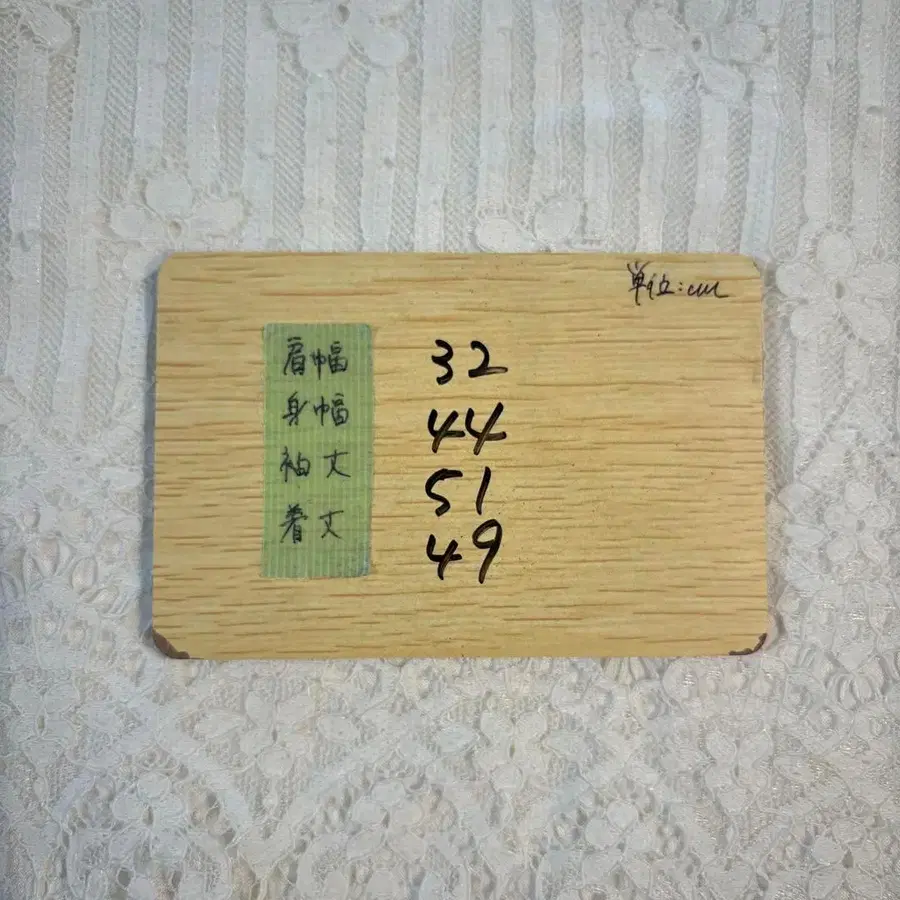 単位:cm
肩幅 32
身幅 44
袖丈 51
着丈 49